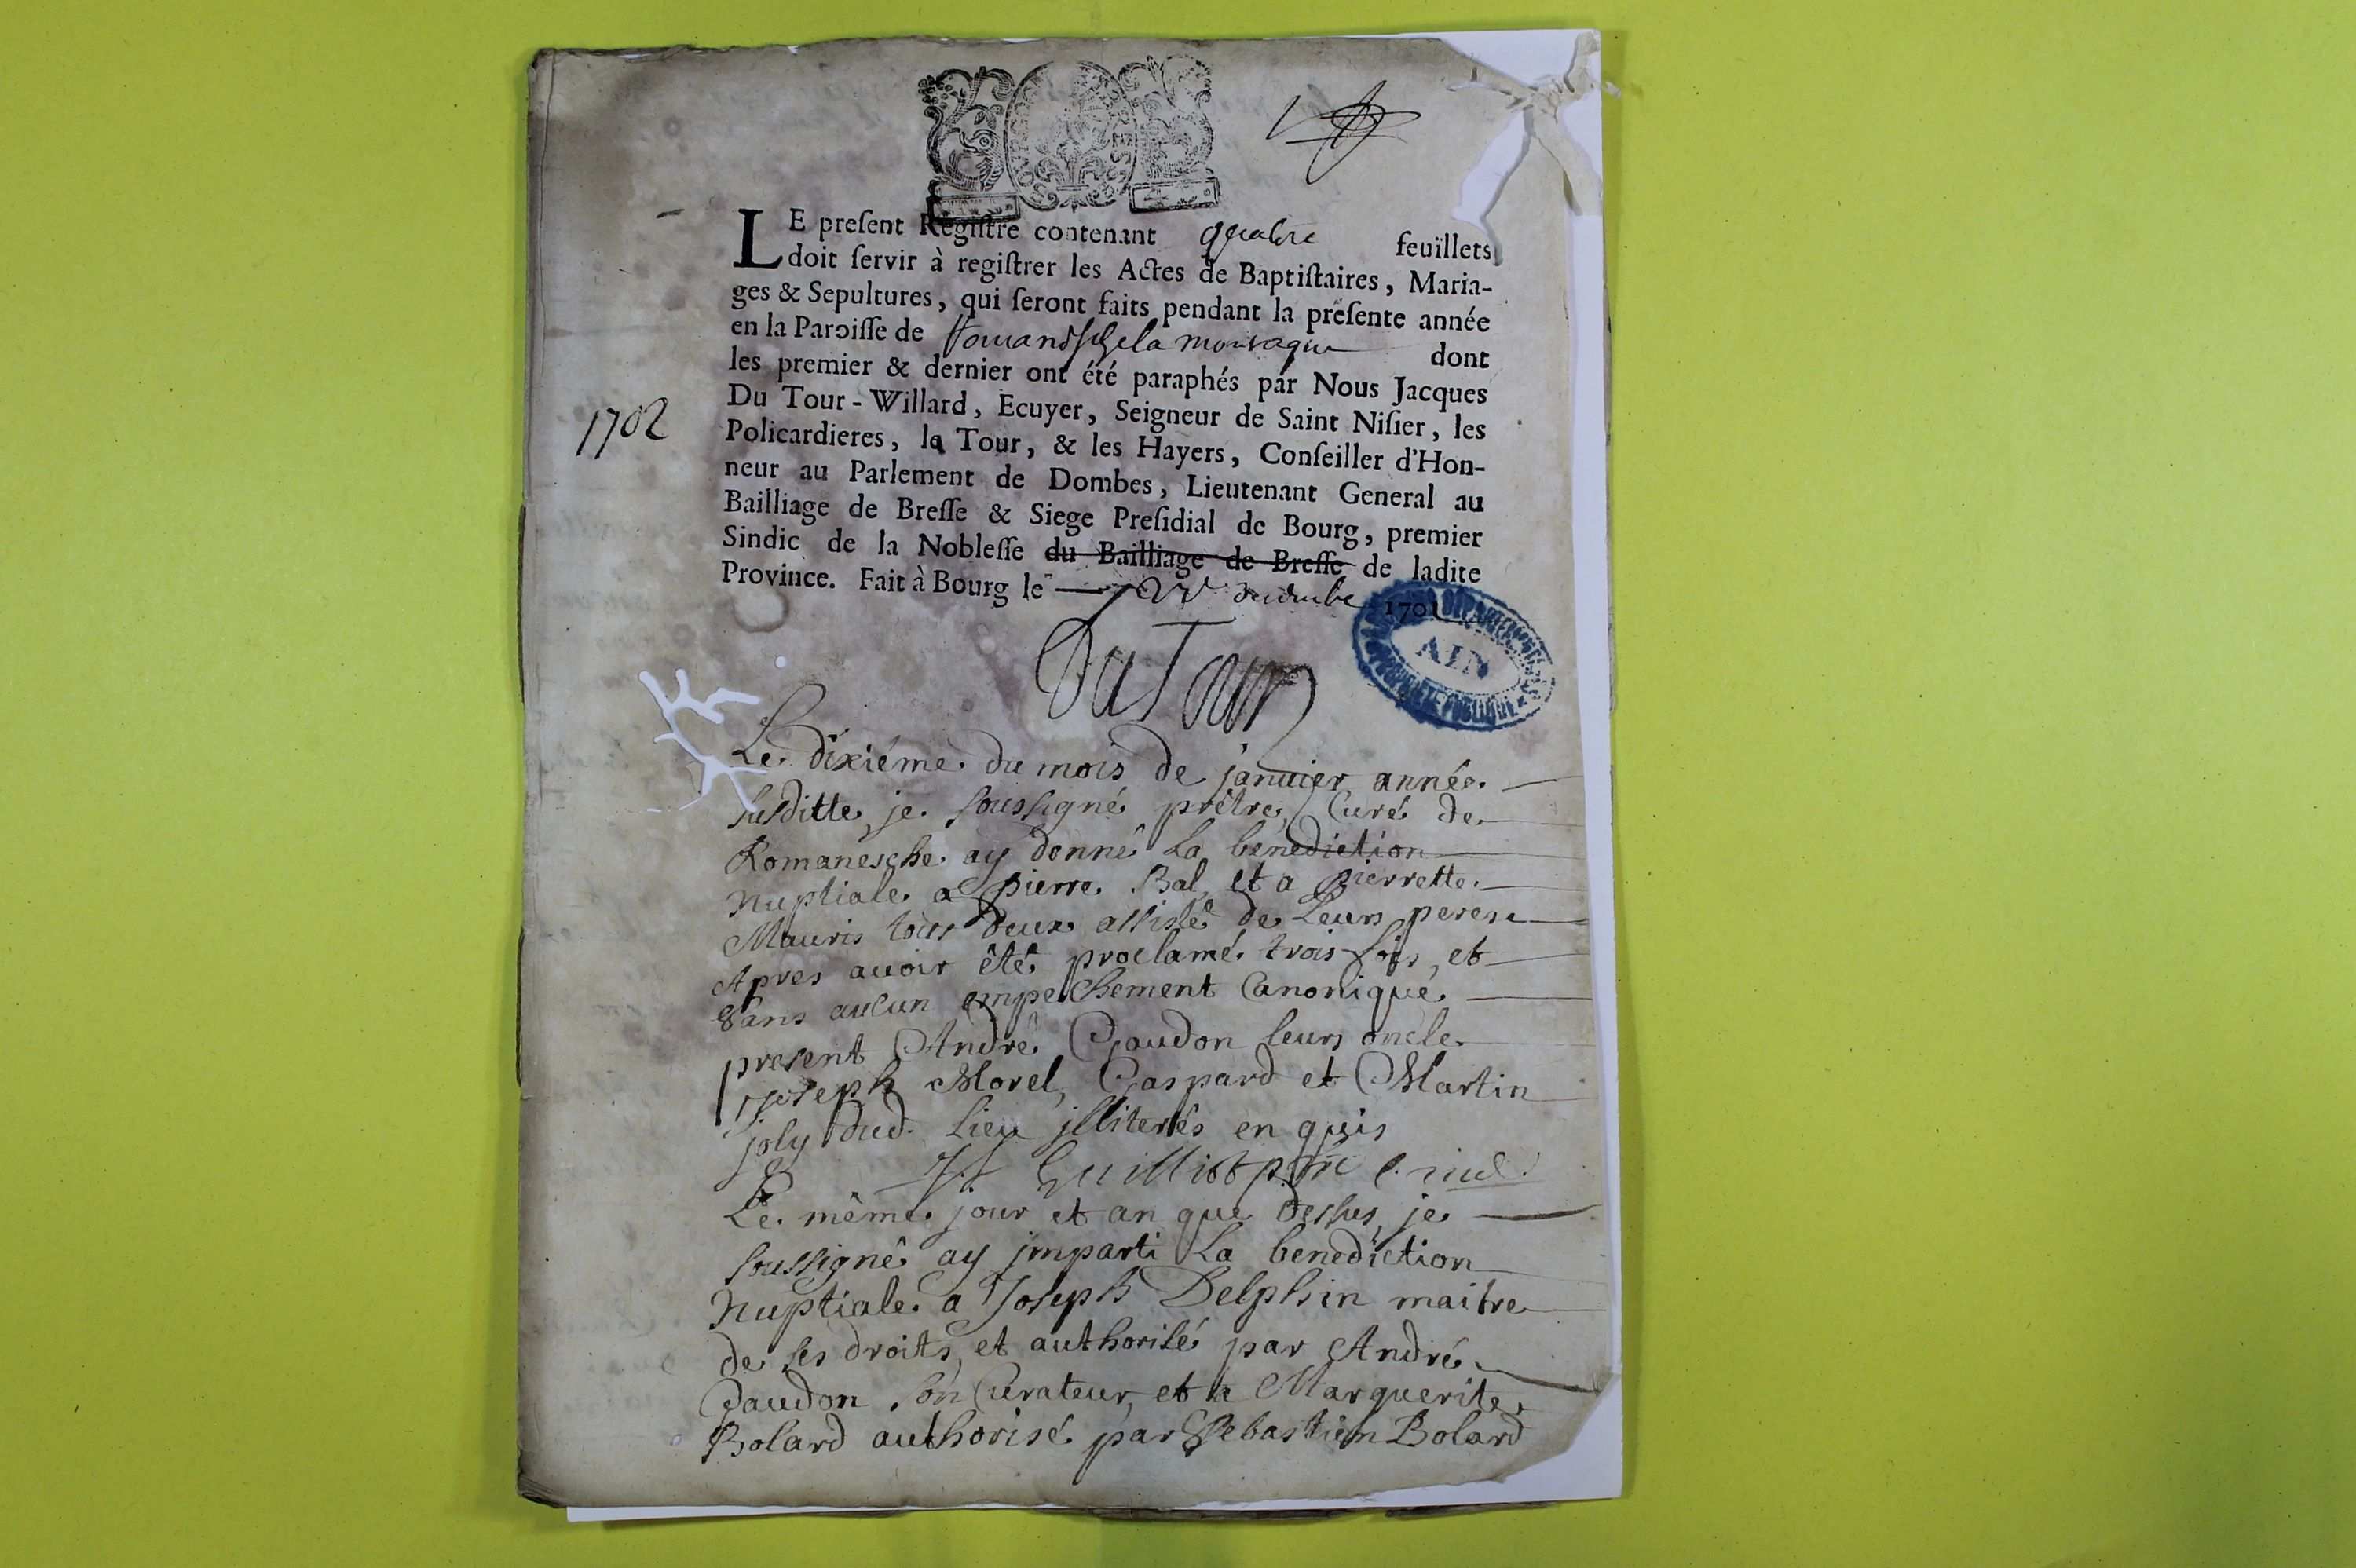 LE preſent Regiſtre contenant quatre feuïllets
doit ſervir à regiſtrer les Actes de Baptiſtaires, Maria-
ges & Sepultures, qui ſeront faits pendant la preſente année
en la Paroiſſe de dont
les premier & dernier ont été paraphés par Nous Jacques
Du Tour-Willard, Ecuyer, Seigneur de Saint Niſier, les
1702
Policardieres, la Tour, & les Hayers, Conſeiller d'Hon-
neur au Parlement de Dombes, Lieutenant General au
Bailliage de Breſſe & Siege Preſidial de Bourg, premier
Sindic de la Nobleſſe du Bailliage de Breſſe de ladite
Province. Fait à Bourg le decembre 1701
AIN
DuTour
Le dixiéme du mois de januier année
susditte, je soussigné prêtre, Curé de
Romanesche ay donné La bénediction
Nuptiale a pierre Bal, et a pierrette
Mauris tous deux assisté de Leurs peres
Apres auoir été proclamé trois fois, et
Sans aucun empechement Canonique
present André Gaudon leurs oncle
joseph Morel, Gaspard et Martin
joly dud. Lieu jlliterés enquis
Guilliot
Le même jour et an que dessus, je
soussigné ay jmparti La benediction
Nuptiale a Joseph Delphin maitre
de ses droits, et authorisé par André
Gaudon son Curateur, et a Marguerite
Bolard authorisé par Sebastien Bolard